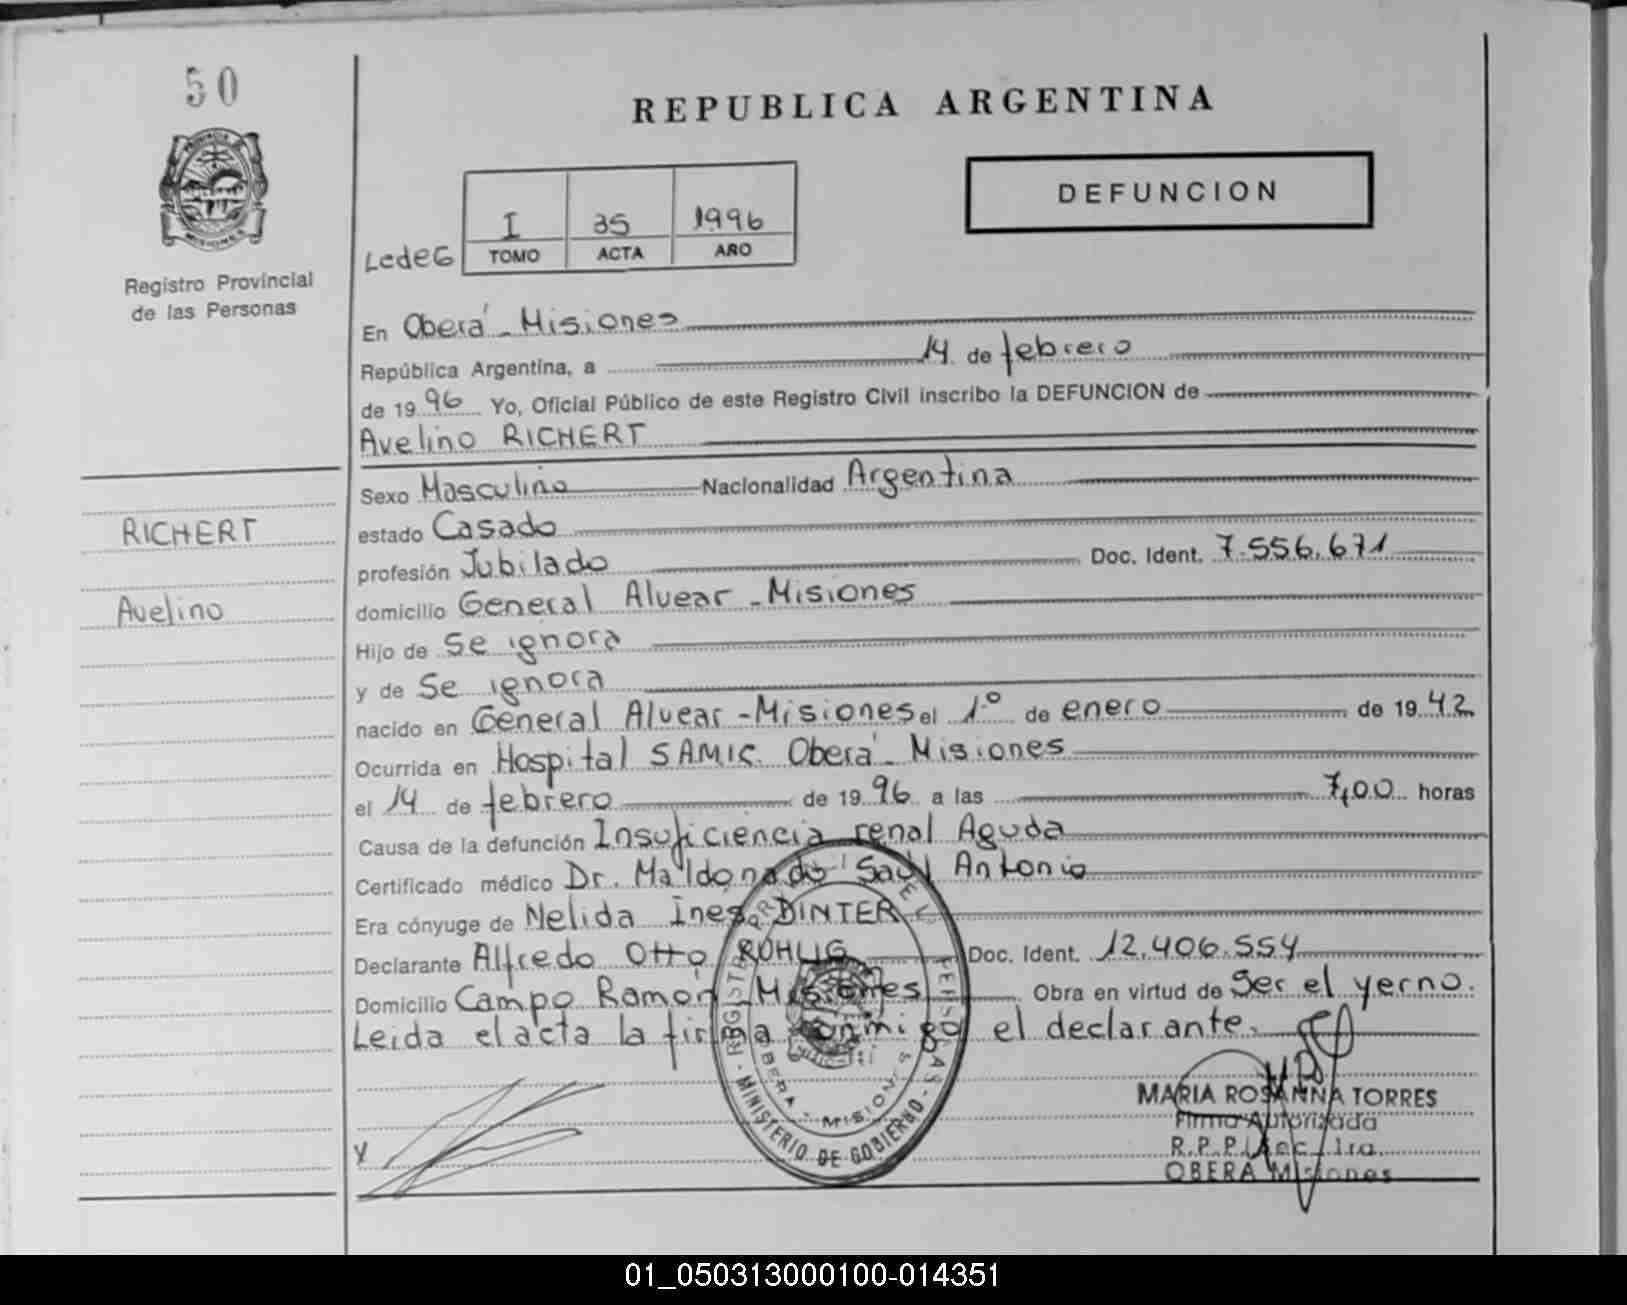 50
PROVINCIA DE
MISIONES
Registro Provincial
de las Personas
RICHERT
Avelino
REPUBLICA ARGENTINA
LcdeG
I 35 1996
TOMO ACTA AÑO
DEFUNCION
En Oberá - Misiones
República Argentina, a 14 de febrero
de 19 96 Yo, Oficial Público de este Registro Civil inscribo la DEFUNCION de
Avelino RICHERT
Sexo Masculino Nacionalidad Argentina
estado Casado
profesión Jubilado Doc. Ident. 7.556.671
domicilio General Alvear - Misiones
Hijo de Se ignora
y de Se ignora
nacido en General Alvear - Misiones el 1º de enero de 19 42
Ocurrida en Hospital SAMIC. Oberá - Misiones
el 14 de febrero de 19 96 a las 7,00 horas
Causa de la defunción Insuficiencia renal Aguda
Certificado médico Dr. Maldonado Saúl Antonio
Era cónyuge de Nelida Ines DINTER
Declarante Alfredo Otto ROHLIG Doc. Ident. 12.406.554
Domicilio Campo Ramón - Misiones Obra en virtud de Ser el yerno.
Leida el acta la firma conmigo el declarante.
MINISTERIO DE GOBIERNO
OBERA - MISIONES
MARIA ROSANNA TORRES
Firma Autorizada
R.P.P. Sec. 1ra.
OBERA Misiones
01_050313000100-014351